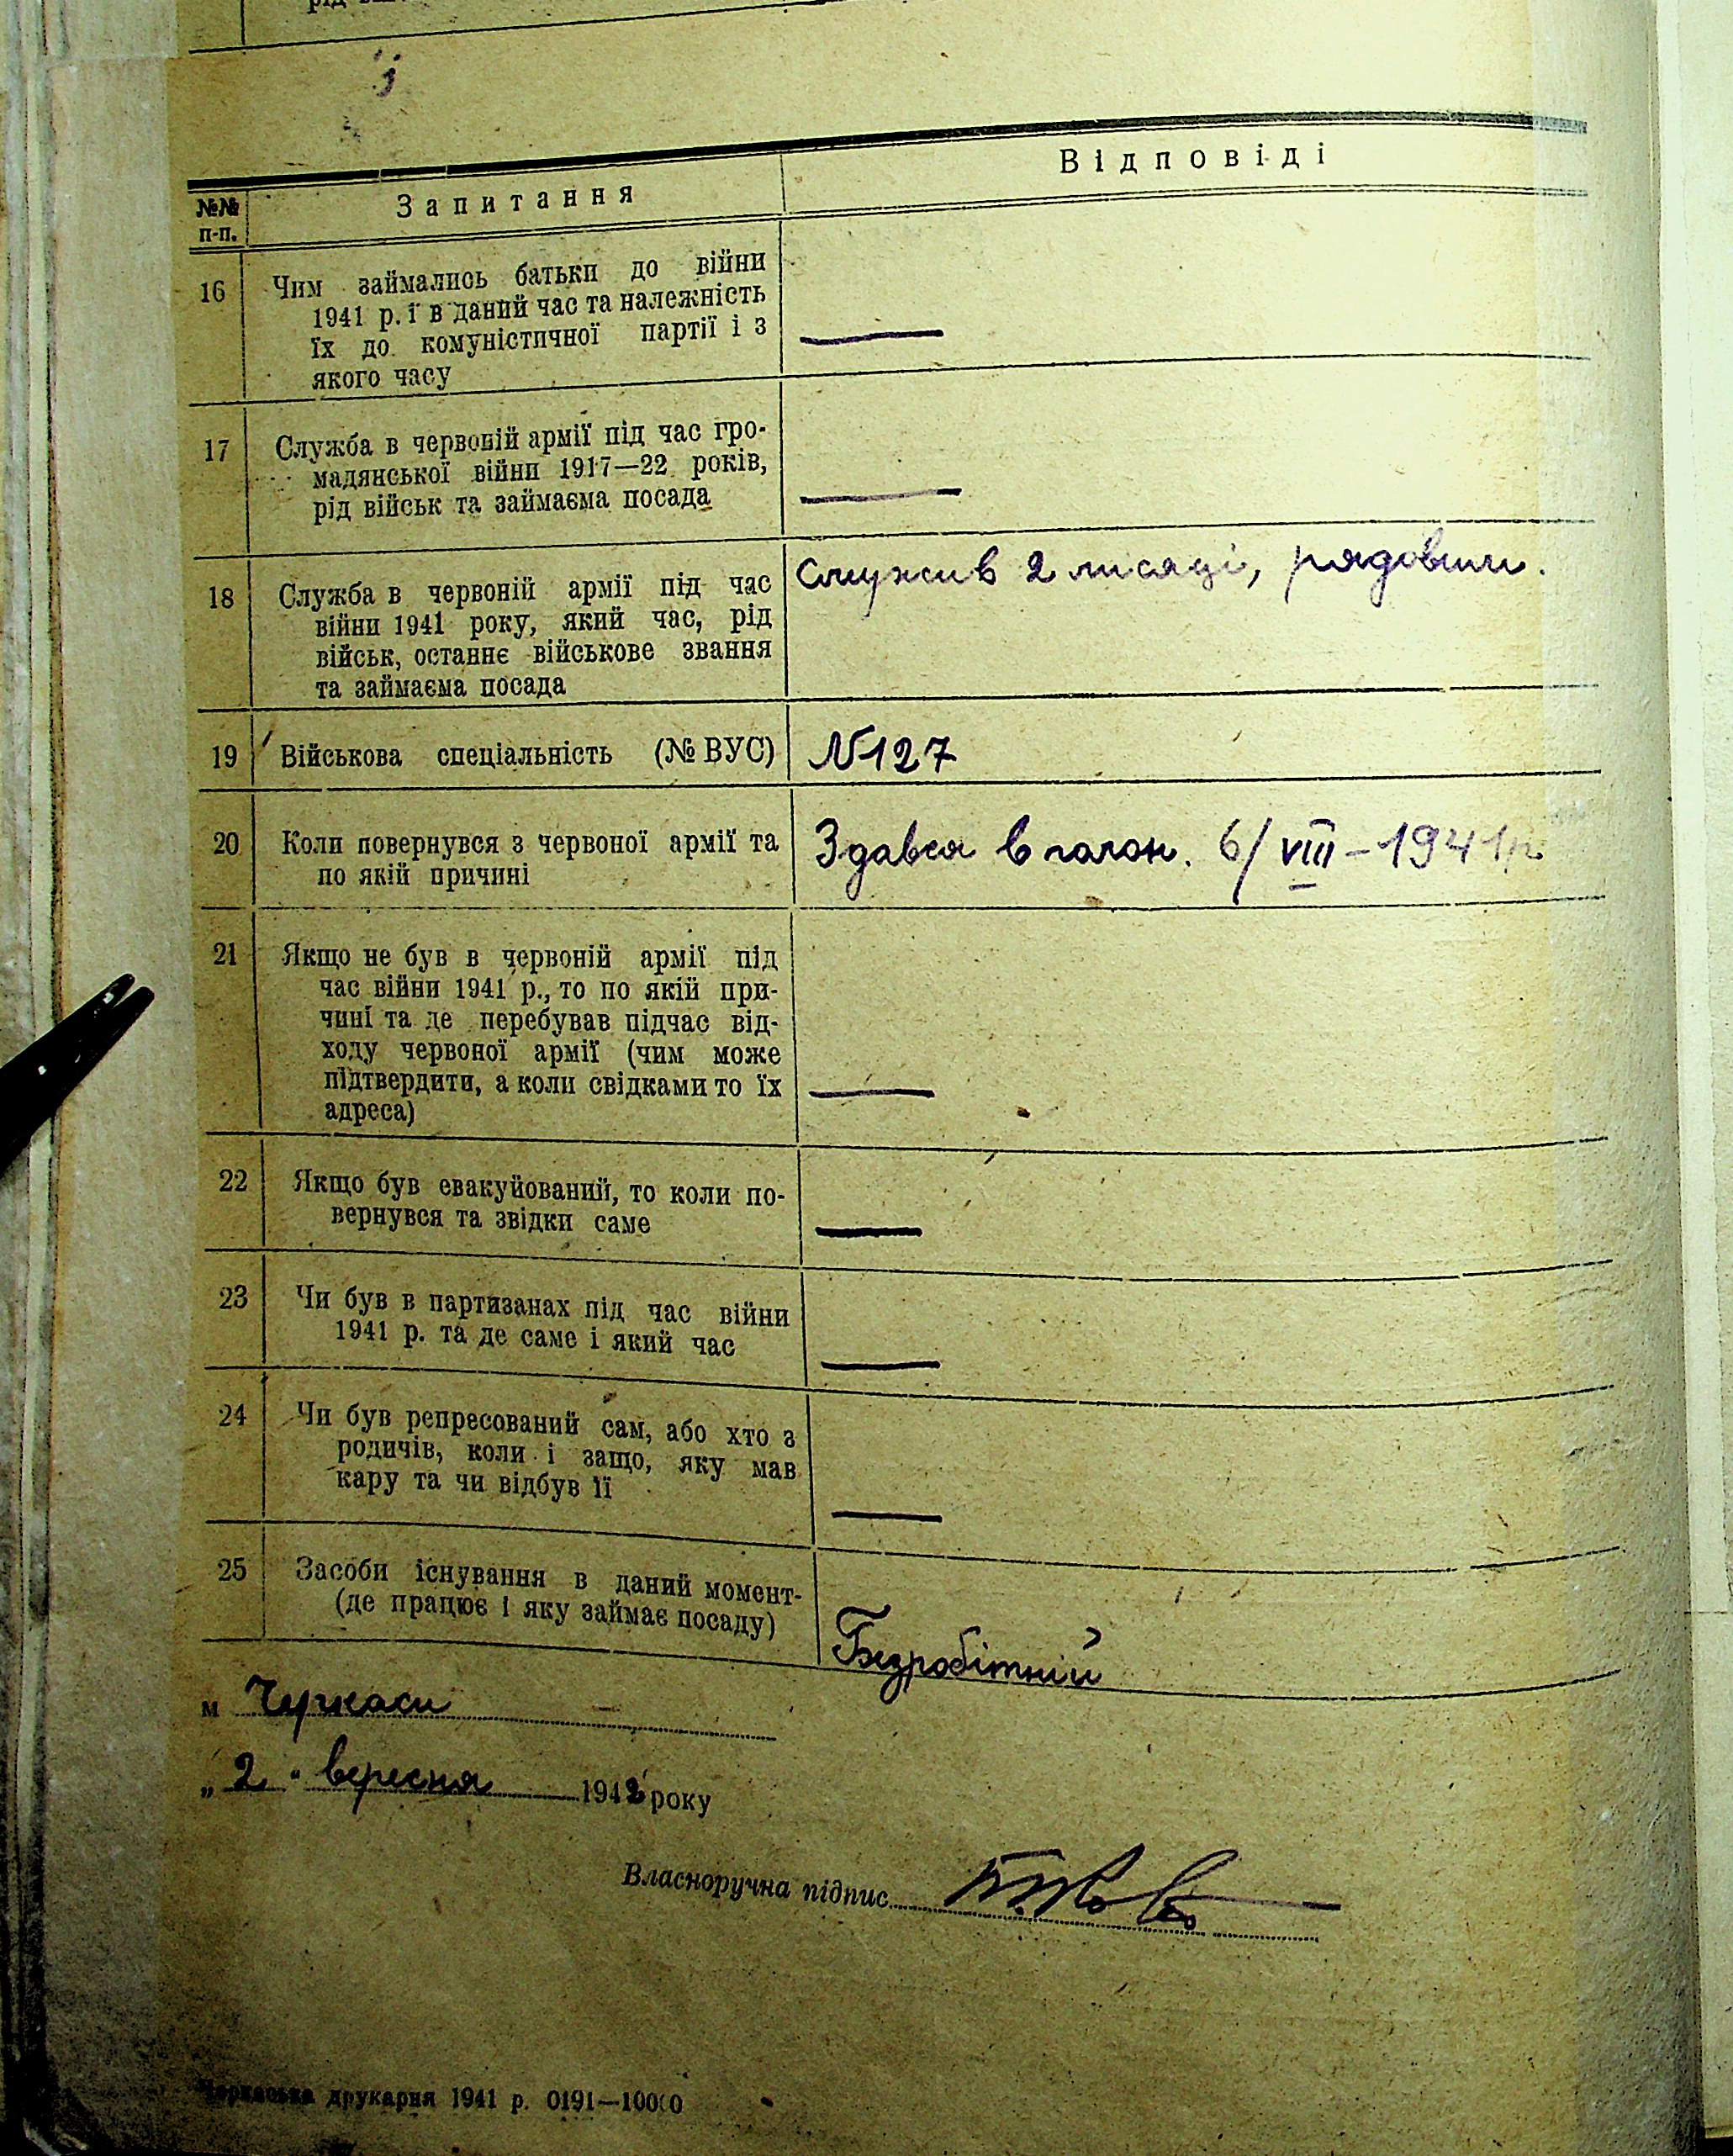 Відповіді
№№ Запитання
п-п.
16 Чим займались батьки до війни
1941 р. і в даний час та належність
їх до комуністичної партії і з
якого часу
—
17 Служба в червоній армії під час гро-
мадянської війни 1917—22 років,
рід військ та займаєма посада
—
18 Служба в червоній армії під час
війни 1941 року, який час, рід
військ, останнє військове звання
та займаєма посада
Служив 2 місяці, рядовим.
19 Військова спеціальність (№ ВУС)
N127
20 Коли повернувся з червоної армії та
по якій причині
Здався в полон. 6/VIII-1941р.
21 Якщо не був в червоній армії під
час війни 1941 р., то по якій при-
чині та де перебував підчас від-
ходу червоної армії (чим може
підтвердити, а коли свідками то їх
адреса)
—
22 Якщо був евакуйований, то коли по-
вернувся та звідки саме
—
23 Чи був в партизанах під час війни
1941 р. та де саме і який час
—
24 Чи був репресований сам, або хто з
родичів, коли і защо, яку мав
кару та чи відбув її
—
25 Засоби існування в даний момент-
(де працює і яку займає посаду)
Безробітній
м Черкаси
„2" вересня 1942 року
Власноручна підпис
Черкаська друкарня 1941 р. 0191—10000